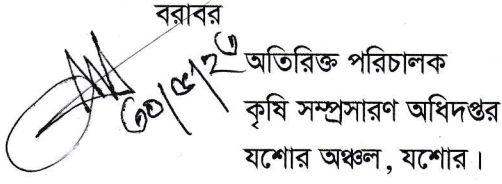 বরাবর
অতিরিক্ত পরিচালক
কৃষি সম্প্রসারণ অধিদপ্তর
যশোর অঞ্চল, যশোর।